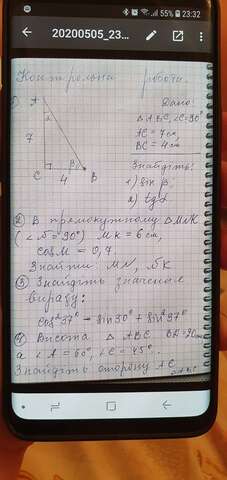 55% 23:32
20200505_23...
Контрольна робота.
1)
A
α
7
β
C
4
B
Дано:
Δ ABC, ∠C=90°
AC = 7 см,
BC = 4 см
Знайдіть:
1) sin β;
2) tg α.
2) В прямокутному ΔMNK
(∠N=90°) MK = 6 см,
cos M = 0,7
Знайти MN, NK
3) Знайдіть значення
виразу:
cos²37° - sin 30° + sin²37°
4) Висота Δ ABC BD = 20 см
а ∠A = 60°, ∠C = 45°.
Знайдіть сторону AC